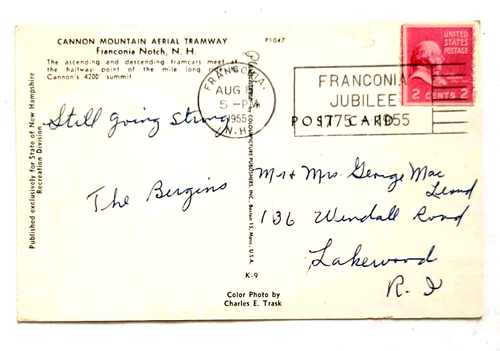 CANNON MOUNTAIN AERIAL TRAMWAY
Franconia Notch, N. H.
P1047
The ascending and descending tramcars meet at
the halfway point of the mile long
Cannon's 4200' summit
Published exclusively for State of New Hampshire
Recreation Division
Still going strong
The Bergins
FRANCONIA.
AUG
5 - PM
1955
N.H.
FRANCONIA
JUBILEE
1775 - 1955
POST CARD
UNITED
STATES
POSTAGE
2 CENTS 2
PUBLISHERS, INC., Boston 15, Mass., U.S.A.
Mr & Mrs George Mac
Leod
136 Windall Road
Lakewood
R. I
K-9
Color Photo by
Charles E. Trask